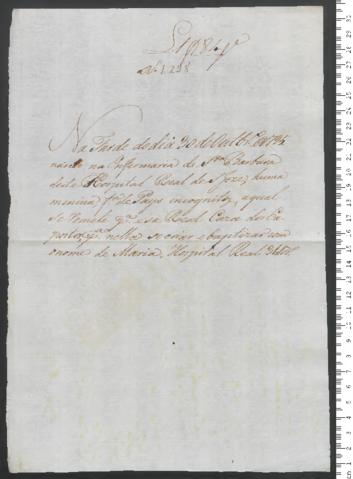 Na Tarde do dia 30 de Outbrº de 1795
nasceo na Enfermaria de Stª Barbara
deste Hospital Real de S. Joze, huma
menina fª de Pays incognitos, aqual
se remete pª essa Real Caza dos Ex
postos, pª nella se criar e baptizar com
o nome de Maria. Hospital Real